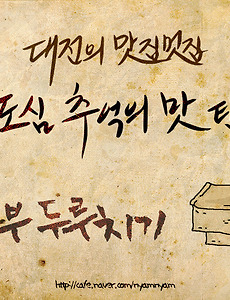 대전의 맛집멋집
도심 추억의 맛
부 두루치기
http://cafe.naver.com/nyamnyam